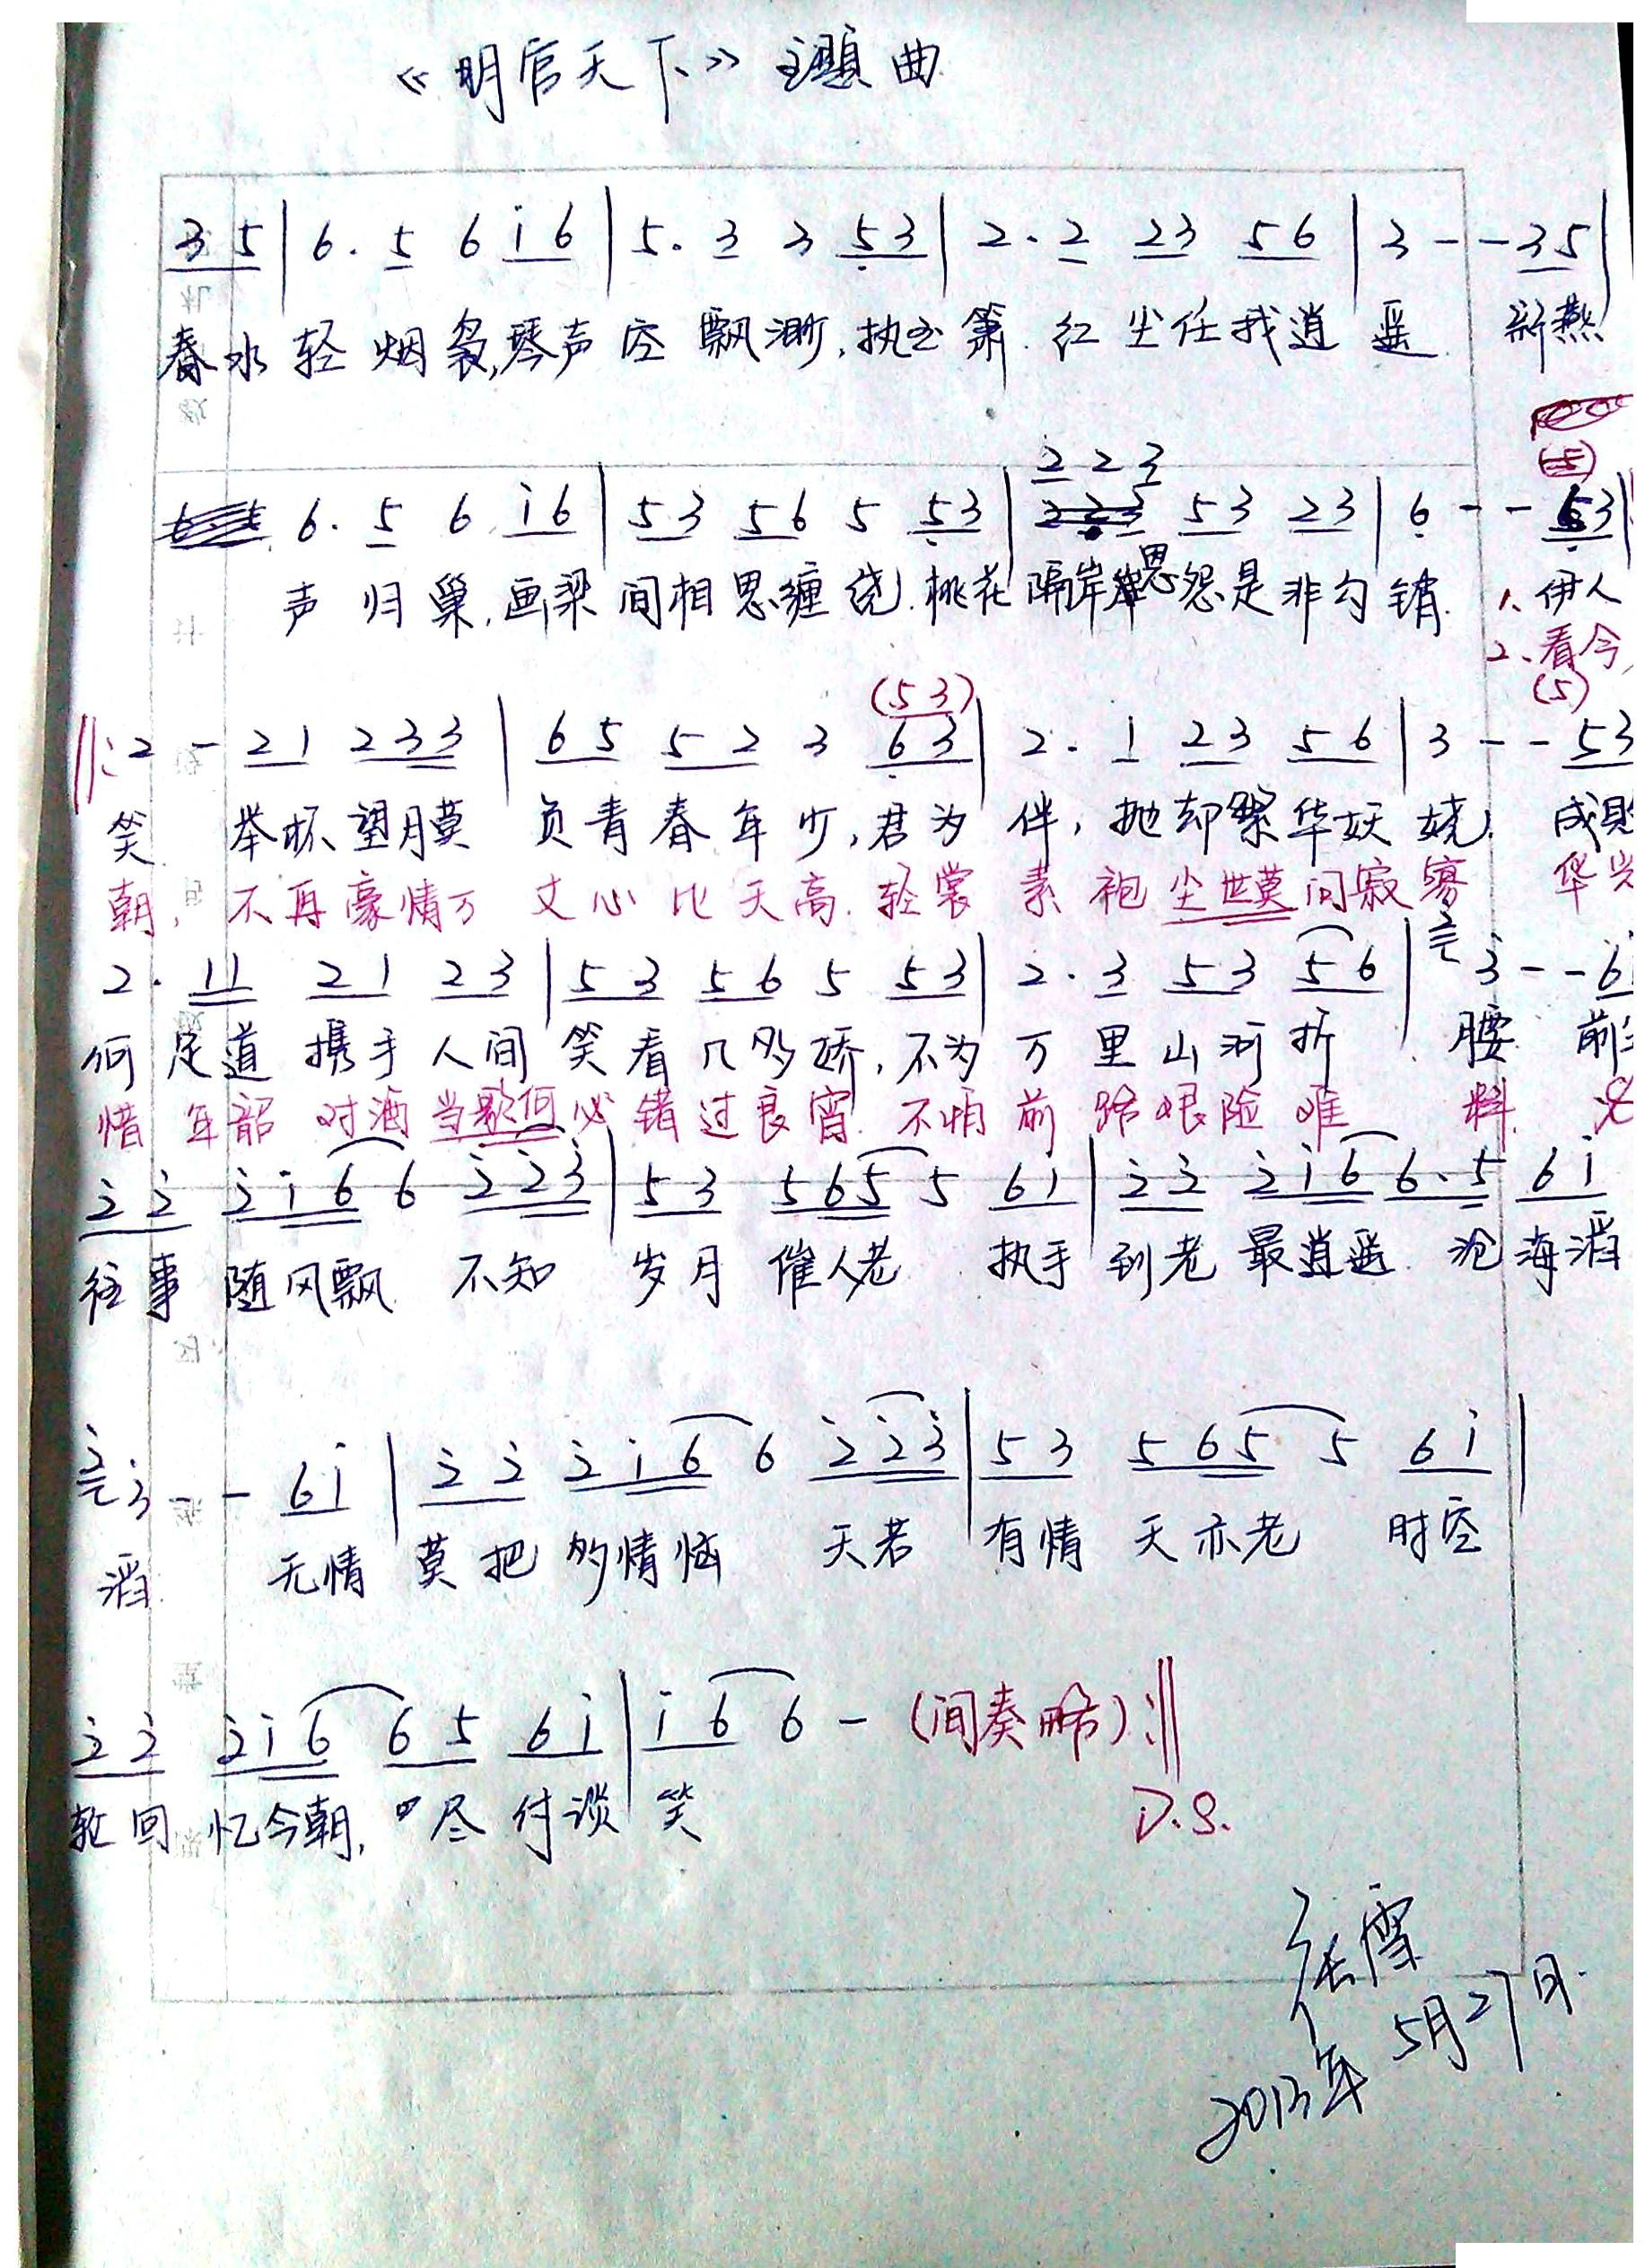 《明官天下》主题曲
3 5 | 6. 5 6 i 6 | 5. 3 3 5 3 | 2. 2 2 3 5 6 | 3 - - 3 5 |
春水轻烟袅,琴声空飘渺,执玉箫.红尘任我逍遥. 新燕
2 2 3
(5)
6. 5 6 i 6 | 5 3 5 6 5 5 3 | 5 3 2 3 | 6 - - 6 3 |
声归巢,画梁间相思缠绕.桃花隔岸恩怨是非勾销. 1、伊人
2、看今
(5 3) (5)
‖: 2 - 2 1 2 3 3 | 6 5 5 2 3 6 3 | 2. 1 2 3 5 6 | 3 - - 5 3
笑 举杯望月莫负青春年少,君为伴,抛却繁华妖娆. 成败
朝,不再豪情万丈心比天高.轻裳素袍尘世莫问寂寥 华
2. 1 1 2 1 2 3 | 5 3 5 6 5 5 3 | 2. 3 5 3 5 6 | 2 3 - - 6
何足道携手人间笑看几多娇,不为万里山河折腰 前
惜年韶 对酒当歌何必错过良宵.不怕前路艰险难料.
2 2 2 i 6 6 2 2 3 | 5 3 5 6 5 5 6 1 | 2 2 2 i 6 6. 5 6 i
往事随风飘 不知岁月催人老 执手到老最逍遥.沧海滔
2 3 - - 6 i | 2 2 2 i 6 6 2 2 3 | 5 3 5 6 5 5 6 i |
滔. 无情莫把多情恼 天若有情天亦老 时空
2 2 2 i 6 6 5 6 i | i 6 6 - (间奏略) :‖
轮回忆今朝,尽付谈笑
D.S.
2013年5月27日.